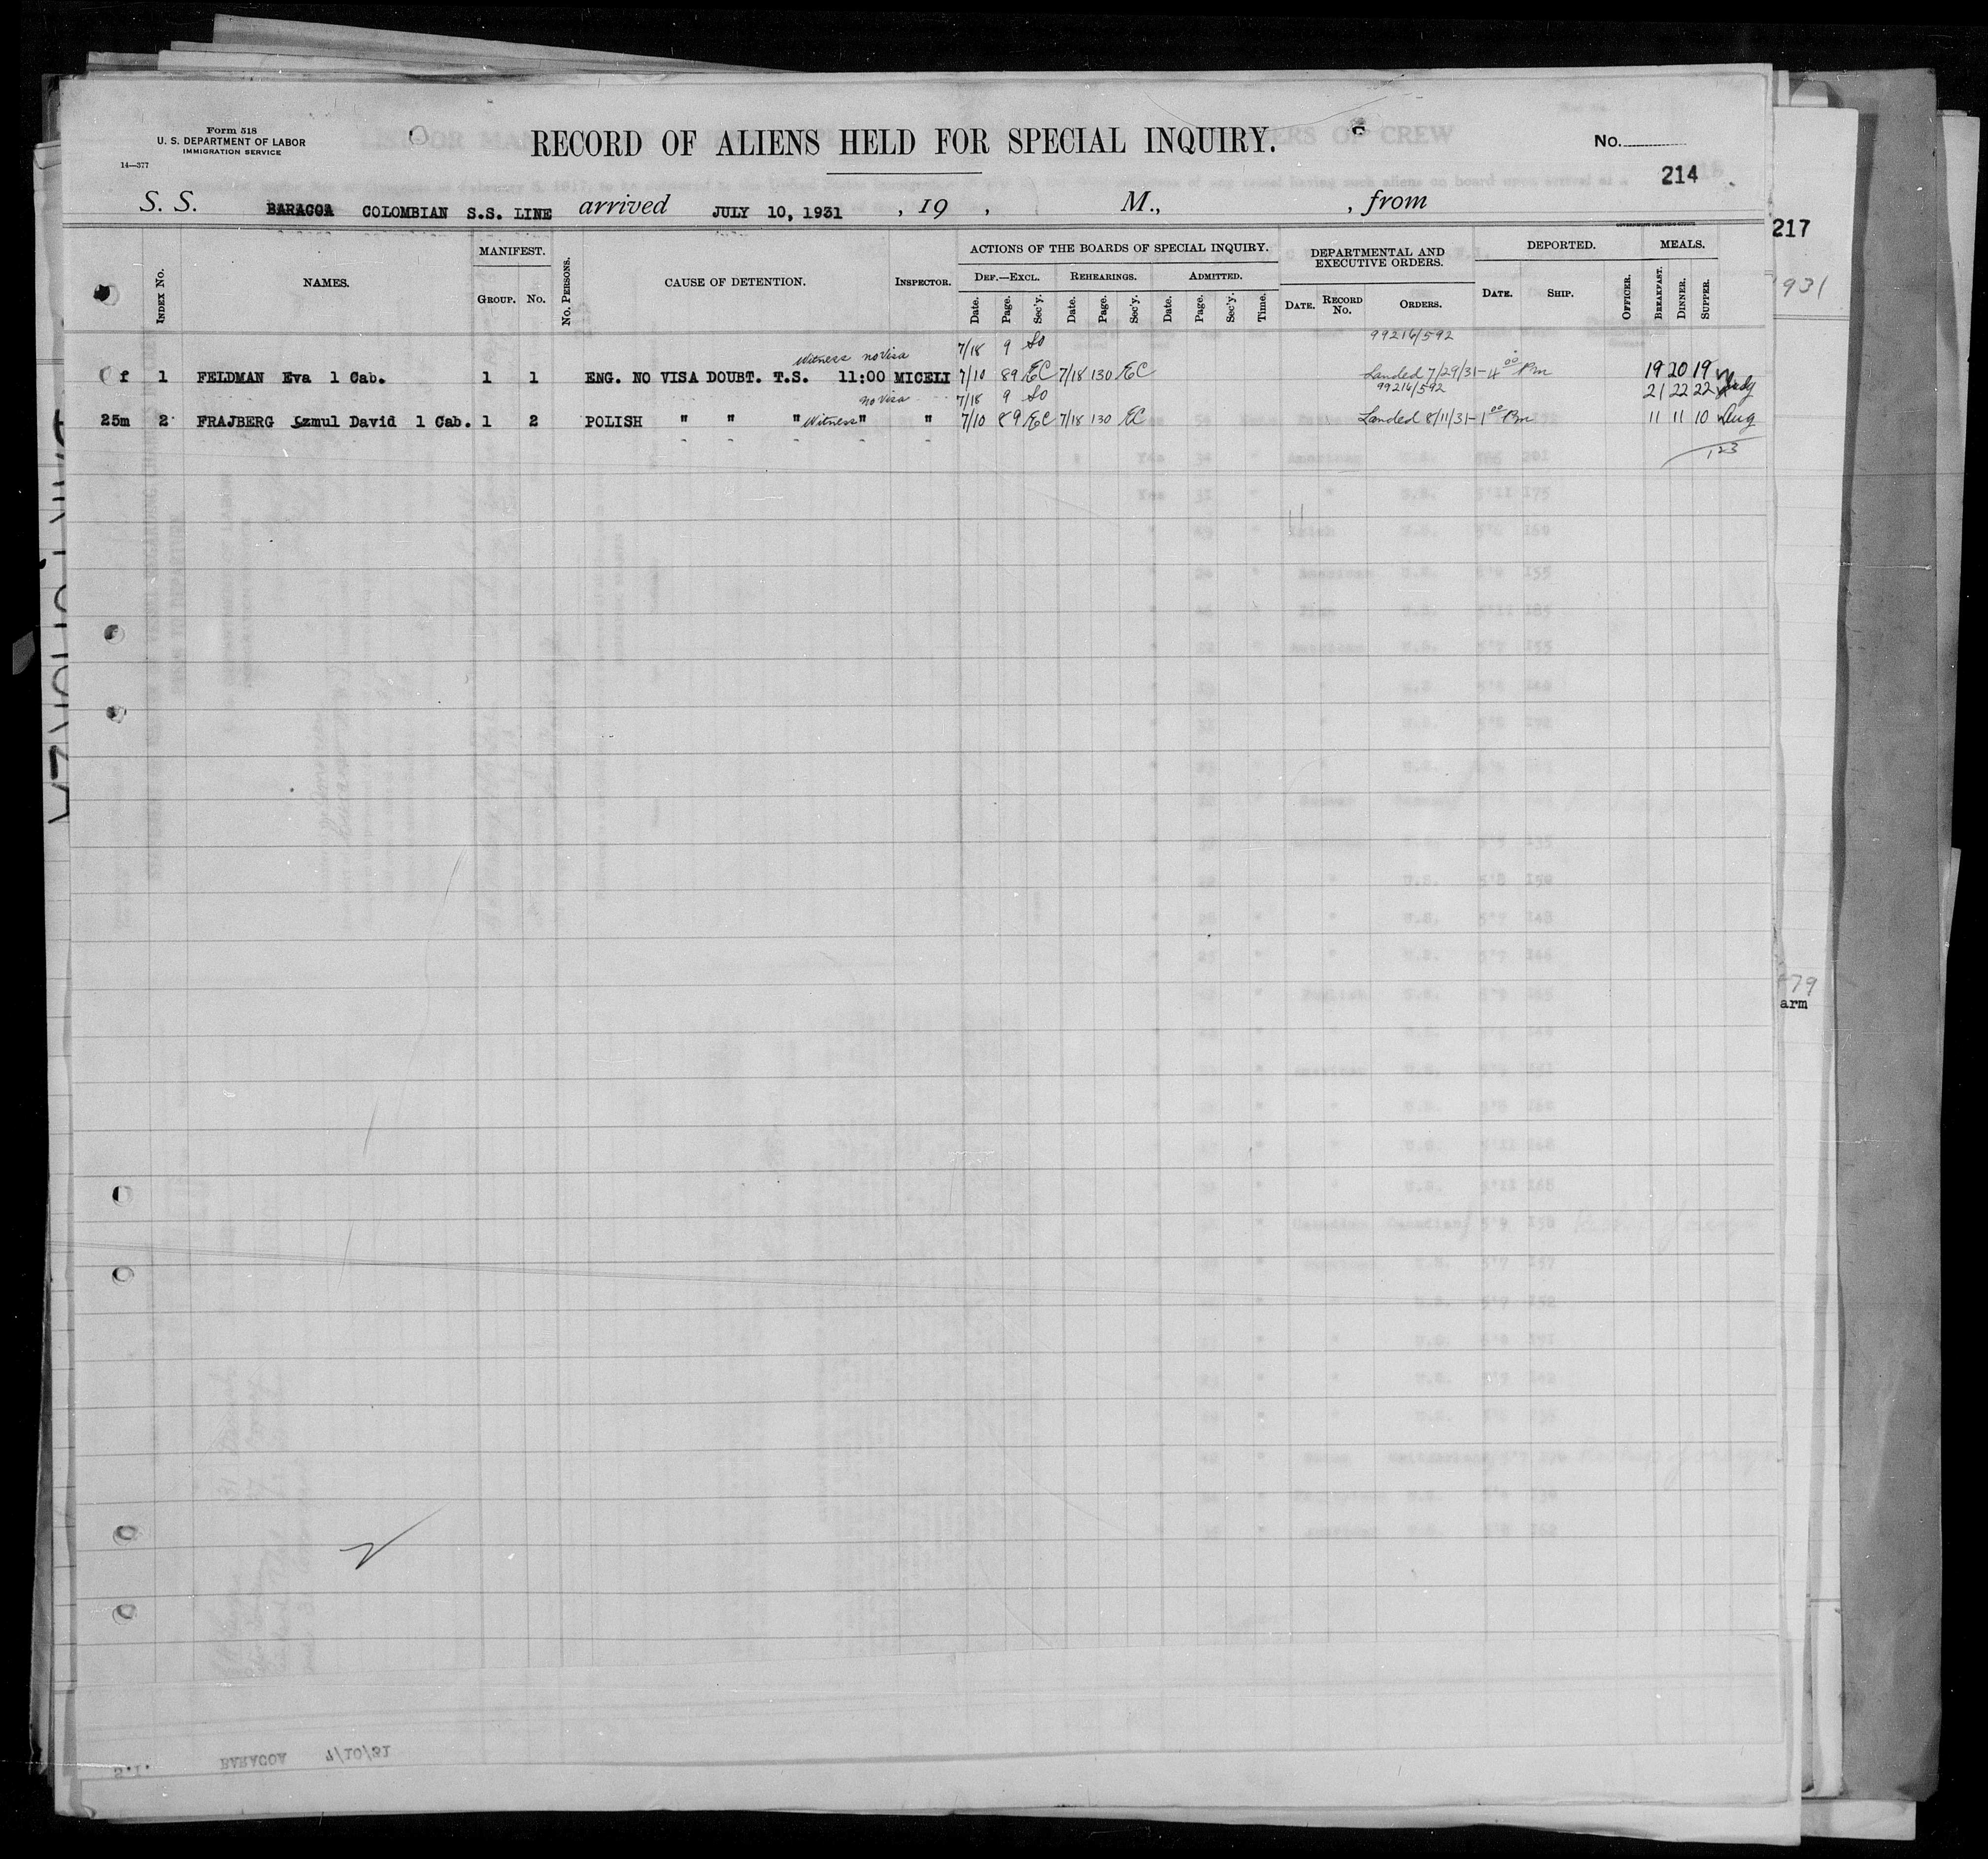 Form 518
U. S. DEPARTMENT OF LABOR
IMMIGRATION SERVICE
14—377
RECORD OF ALIENS HELD FOR SPECIAL INQUIRY.
No.
214
S. S. BARACOA COLOMBIAN S.S. LINE arrived JULY 10, 1931 , 19 , M., , from
217
1931
INDEX No.
NAMES.
MANIFEST.
GROUP. No.
No. PERSONS.
CAUSE OF DETENTION.
INSPECTOR.
ACTIONS OF THE BOARDS OF SPECIAL INQUIRY.
DEF.—EXCL. REHEARINGS. ADMITTED.
Date. Page. Sec'y. Date. Page. Sec'y. Date. Page. Sec'y. Time.
DEPARTMENTAL AND EXECUTIVE ORDERS.
DATE. RECORD No. ORDERS.
DEPORTED.
DATE. SHIP. OFFICER.
MEALS.
BREAKFAST. DINNER. SUPPER.
7/18 9 So 99216/592
Witness no Visa
f 1 FELDMAN Eva 1 Cab. 1 1 ENG. NO VISA DOUBT. T.S. 11:00 MICELI 7/10 89 EC 7/18 130 EC Landed 7/29/31-4 00 Pm 19 20 19
no Visa 7/18 9 So 99216/592 21 22 22
25m 2 FRAJBERG Szmul David 1 Cab. 1 2 POLISH " " " Witness " " 7/10 89 EC 7/18 130 EC Landed 8/11/31-1 00 Pm 11 11 10 Aug
123
79
arm
S.I. BARACOA 7/10/31